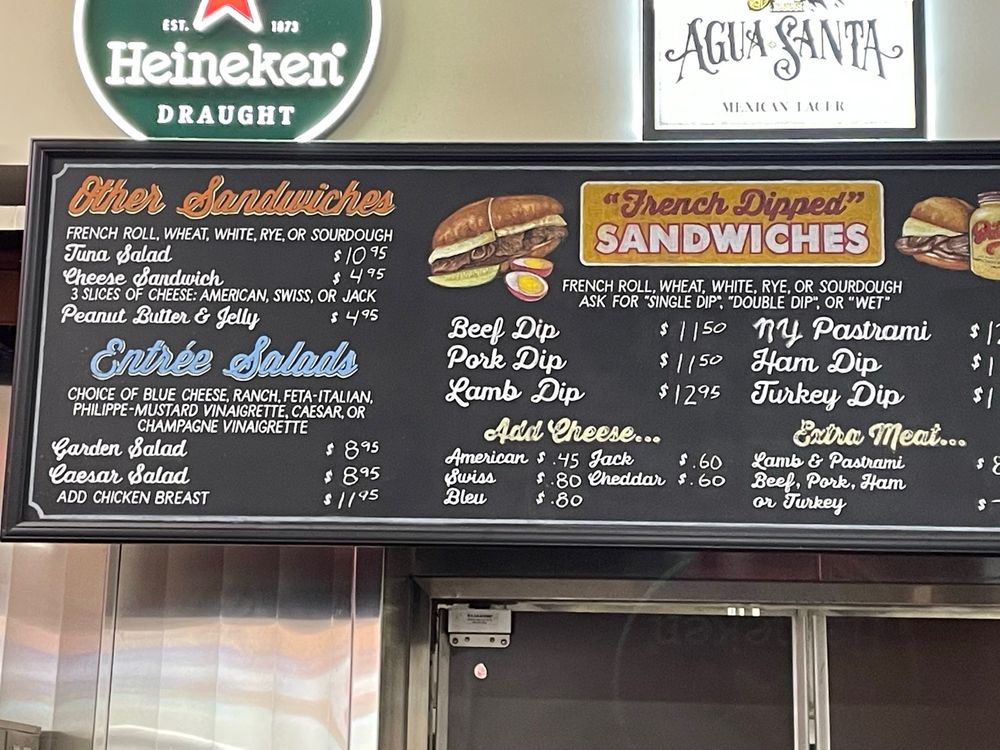 EST. 1873
Heineken
DRAUGHT
AGUA SANTA
MEXICAN LAGER
Other Sandwiches
FRENCH ROLL, WHEAT, WHITE, RYE, OR SOURDOUGH
Tuna Salad $10 95
Cheese Sandwich $4 95
3 SLICES OF CHEESE: AMERICAN, SWISS, OR JACK
Peanut Butter & Jelly $4 95
Entrée Salads
CHOICE OF BLUE CHEESE, RANCH, FETA-ITALIAN,
PHILIPPE-MUSTARD VINAIGRETTE, CAESAR, OR
CHAMPAGNE VINAIGRETTE
Garden Salad $8 95
Caesar Salad $8 95
ADD CHICKEN BREAST $11 95
"French Dipped"
SANDWICHES
FRENCH ROLL, WHEAT, WHITE, RYE, OR SOURDOUGH
ASK FOR "SINGLE DIP", "DOUBLE DIP", OR "WET"
Beef Dip $11 50
Pork Dip $11 50
Lamb Dip $12 95
NY Pastrami $
Ham Dip $
Turkey Dip $
Add Cheese...
American $.45 Jack $.60
Swiss $.80 Cheddar $.60
Bleu $.80
Extra Meat...
Lamb & Pastrami $
Beef, Pork, Ham
or Turkey $